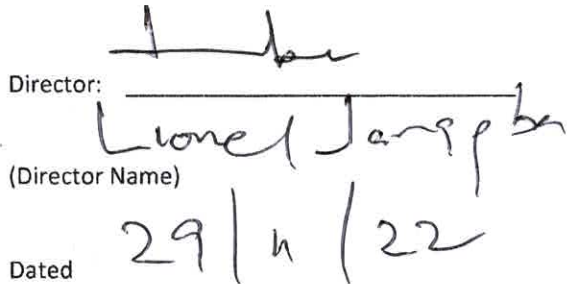 Director:
Lionel
(Director Name)
Dated 29/11/22